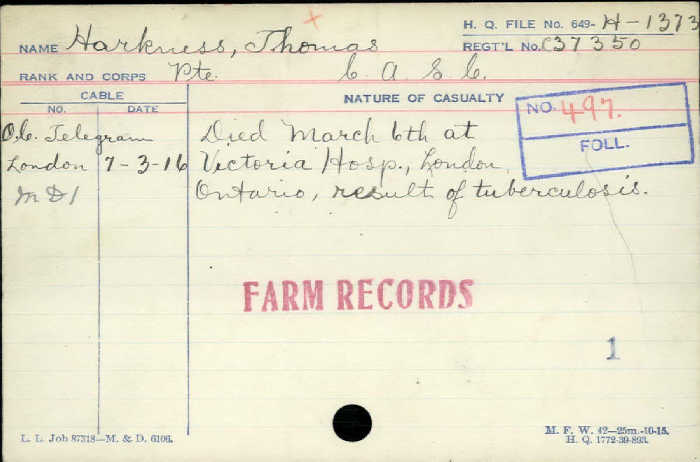 H. Q. FILE No. 649- H-1373
NAME Harkness, Thomas REGT'L No. C37350
RANK AND CORPS Pte. C. A. S. C.
CABLE NATURE OF CASUALTY
NO. DATE
NO. 497.
FOLL.
O.C. Telegram Died March 6th at
London 7-3-16 Victoria Hosp., London,
M D 1 Ontario, result of tuberculosis.
FARM RECORDS
1
L. L. Job 87318—M. & D. 6106.
M. F. W. 42—25m.-10-15.
H. Q. 1772-39-893.